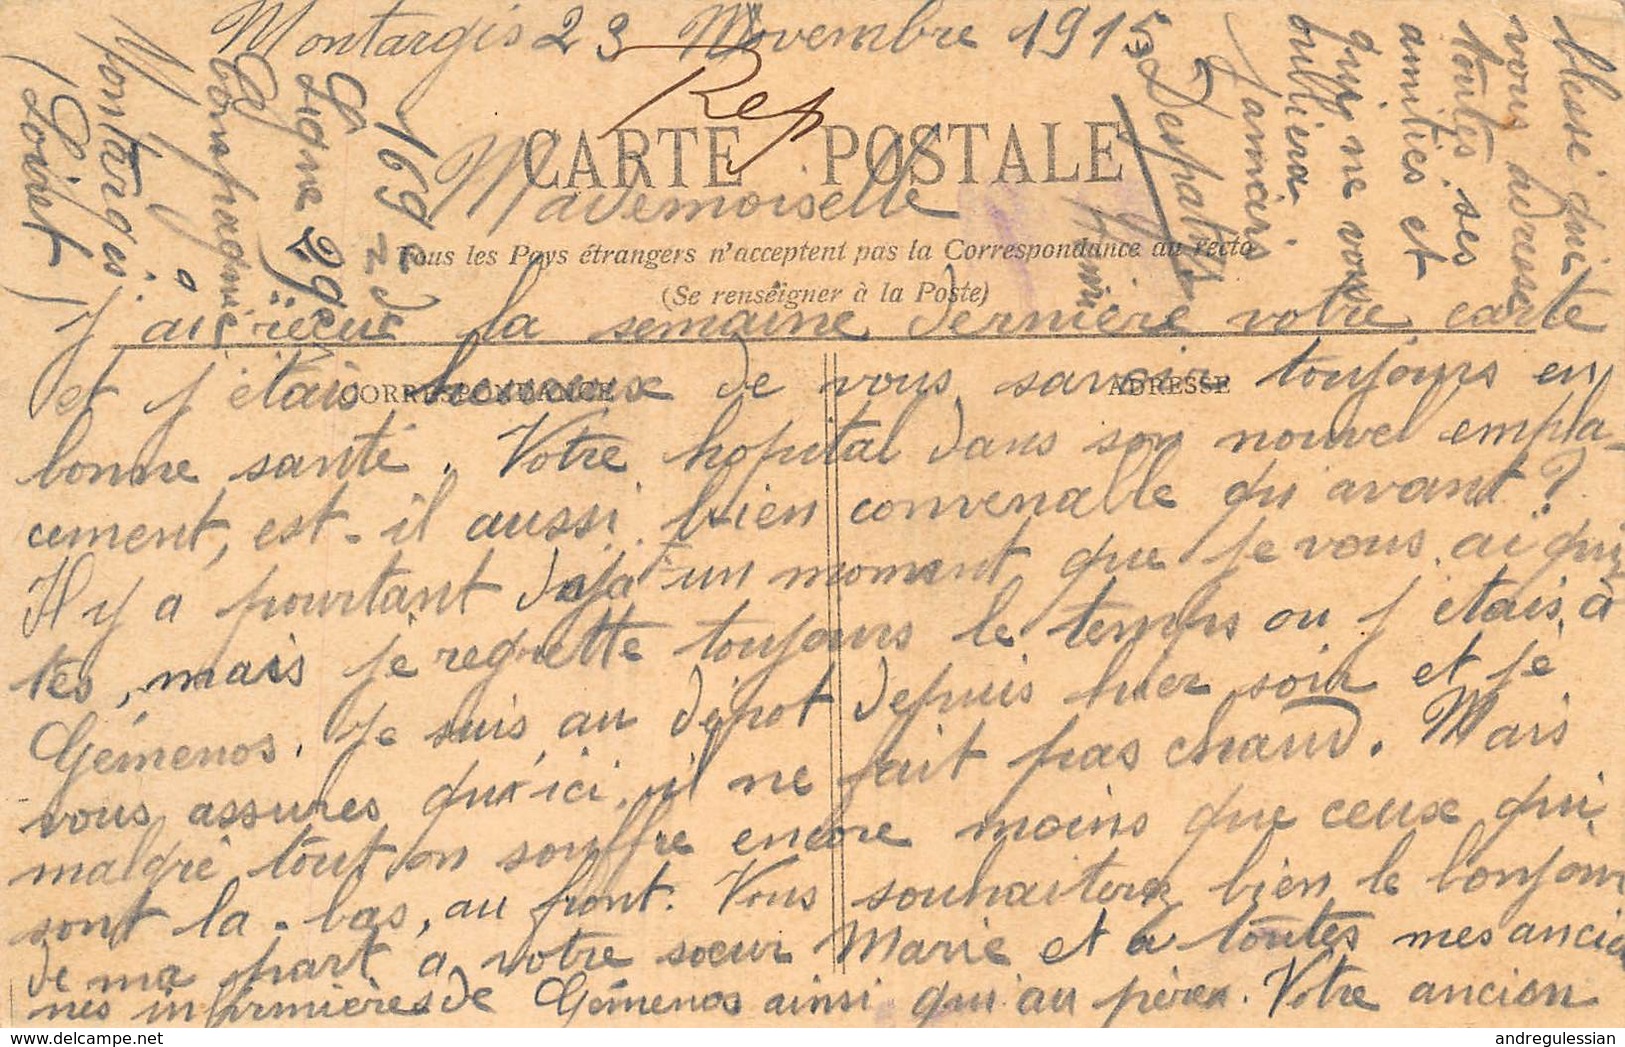 Montargis 23 Novembre 1915
Rep
CARTE POSTALE
Mademoiselle
Tous les Pays étrangers n'acceptent pas la Correspondance au recto
(Se renseigner à la Poste)
CORRESPONDANCE
ADRESSE
j'ai recue la semaine dernière votre carte
et j'étais heureux de vous savoir toujours en
bonne santé. Votre hopital dans son nouvel empla-
cement, est-il aussi bien convenable qu'avant?
Il y a pourtant déja un moment que je vous ai quit
tés, mais je regrette toujours le temps ou j'étais à
Gémenos. Je suis au dépot depuis hier soir et je
vous assures qu'ici, il ne fait pas chaud. Mais
malgré tout on souffre encore moins que ceux qui
sont la-bas, au front. Vous souhaiterez bien le bonjour
de ma part a votre sœur Marie et a toutes mes ancien
nes infirmières de Gémenos ainsi qu'au père. Votre ancien
blessé qui
vous adresse
toutes ses
amitiés et
qui ne vous
oubliera
jamais
Despatis
Firmin
169 e de
Ligne 29e
Compagnie
à
Montargis
(Loiret)
andregulessian